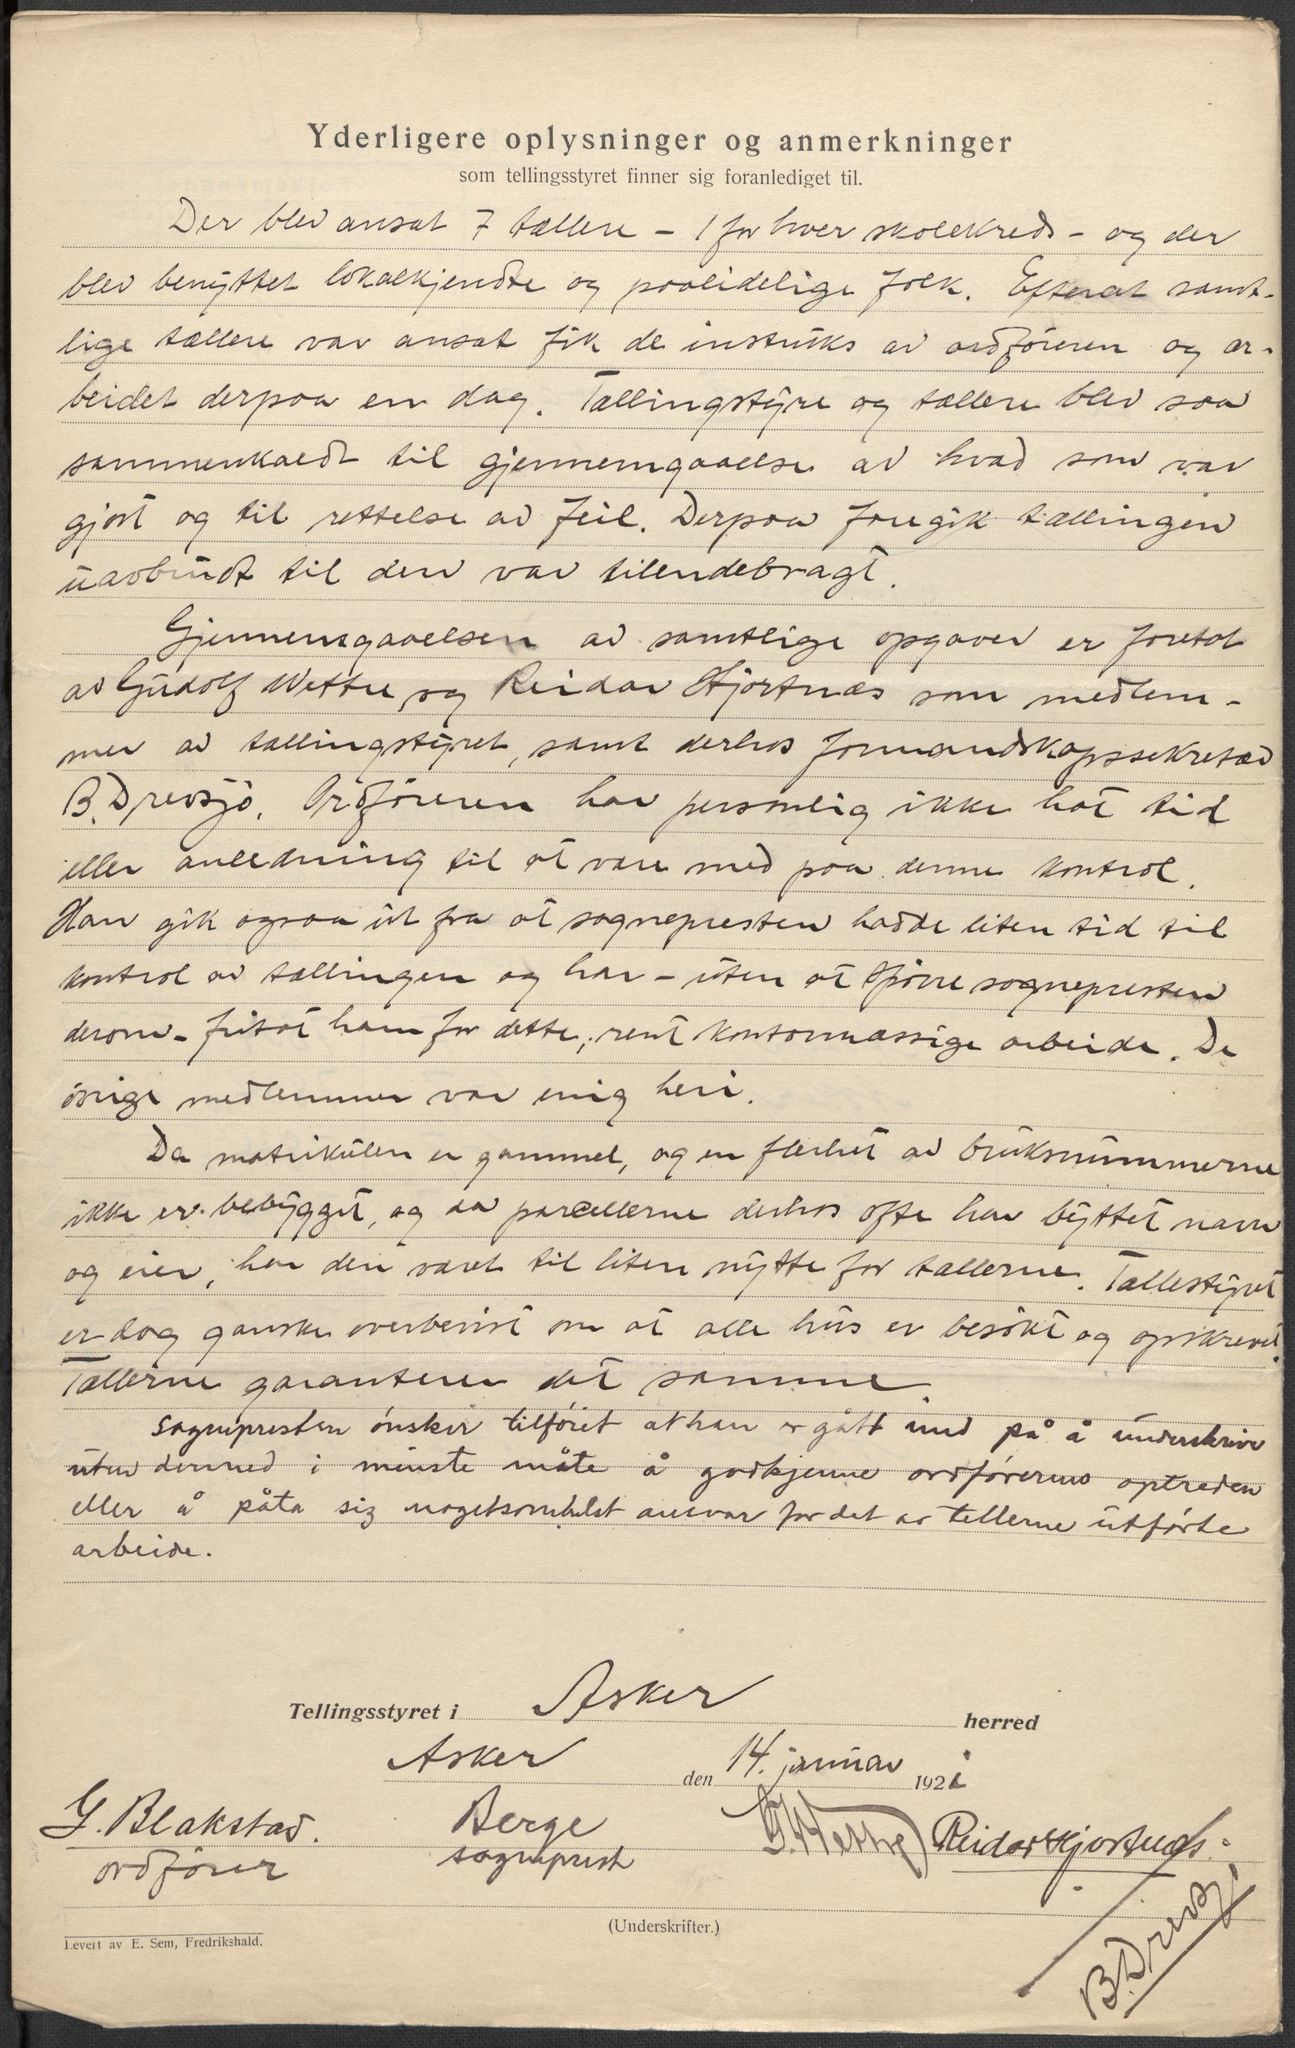 Yderligere oplysninger og anmerkninger
som tellingsstyret finner sig foranlediget til.
Der blev ansat 7 tællere - 1 for hver skolekreds - og der
blev benyttet lokalkjendte og paalidelige folk. Efterat samt-
lige tællere var ansat fik de instruks av ordføreren og ar-
beidet derpaa en dag. Tællingstyre og tællere blev saa
sammenkaldt til gjennemgaaelse av hvad som var
gjort og til rettelse av feil. Derpaa foregik tællingen
uavbrudt til den var tilendebragt.
Gjennemgaaelsen av samtlige opgaver er foretat
av Gudolf Wettre og Reidar Hjortnæs som medlem-
mer av tællingstyret, samt derhos formandskapssekretær
B. Drevsjø. Ordføreren har personlig ikke hat tid
eller anledning til at være med paa denne kontrol.
Han gik ogsaa ut fra at sognepresten hadde liten tid til
kontrol av tællingen og har - uten at spørre sognepresten
derom - fritat ham for dette, rent kontormæssige arbeide. De
øvrige medlemmer var enig heri.
Da matrikulen er gammel, og en flerhet av bruksnummerne
ikke er bebygget, og da parcellerne derhos ofte har byttet navn
og eier, har den været til liten nytte for tællerne. Tællestyret
er dog ganske overbevist om at alle hus er besøkt og opskrevet.
Tællerne garanterer det samme.
Sognepresten ønsker tilføiet at han er gått med på å underskrive
uten dermed i minste måte å godkjenne ordførerens optreden
eller å påta sig nogetsomhelst ansvar for det av tellerne utførte
arbeide.
Tellingsstyret i Asker herred
Asker den 14. januar 1921
G. Blakstad. Berge G. Wettre Reidar Hjortnæs.
ordfører sogneprest
B. Drevsjø
(Underskrifter.)
Levert av E. Sem, Fredrikshald.